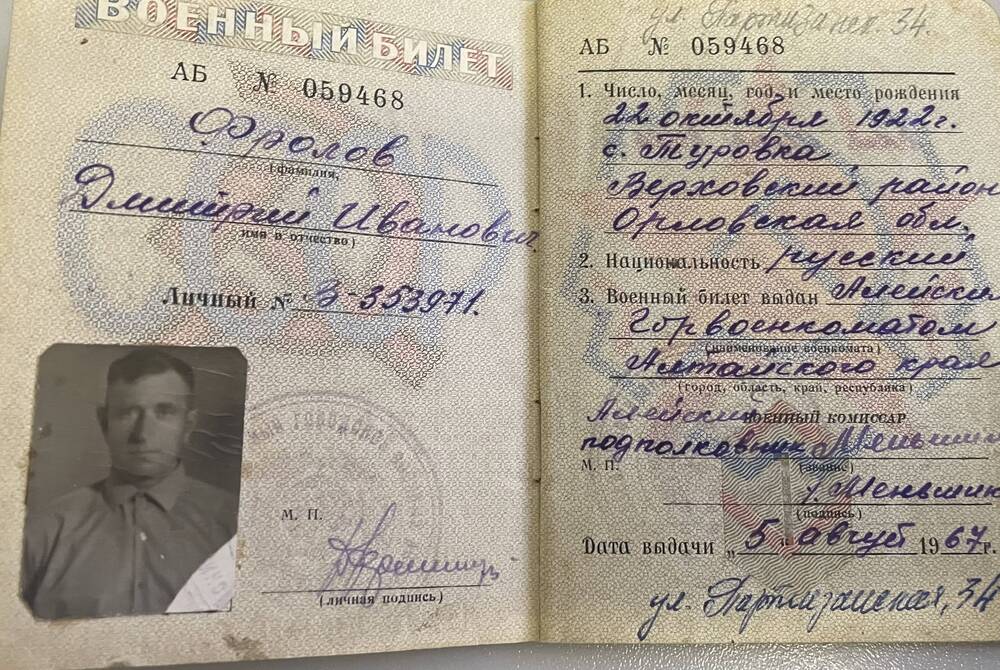 ВОЕННЫЙ БИЛЕТ
АБ № 059468
Фролов
(фамилия,
Дмитрий Иванович
имя и отчество)
Личный № З-353971.
М. П.
(личная подпись)
ул. Партизанск. 34.
АБ № 059468
1. Число, месяц, год и место рождения
22 октября 1922 г.
с. Туровка
Верховский район
Орловская обл.
2. Национальность русский
3. Военный билет выдан Алейским
Горвоенкоматом
(наименование военкомата)
Алтайского края
(город, область, край, республика)
Алейский ВОЕННЫЙ КОМИССАР
подполковник Меньшик
М. П. (звание)
/. Меньшик
(подпись)
Дата выдачи „5" август 1967 г.
ул. Партизанская, 34